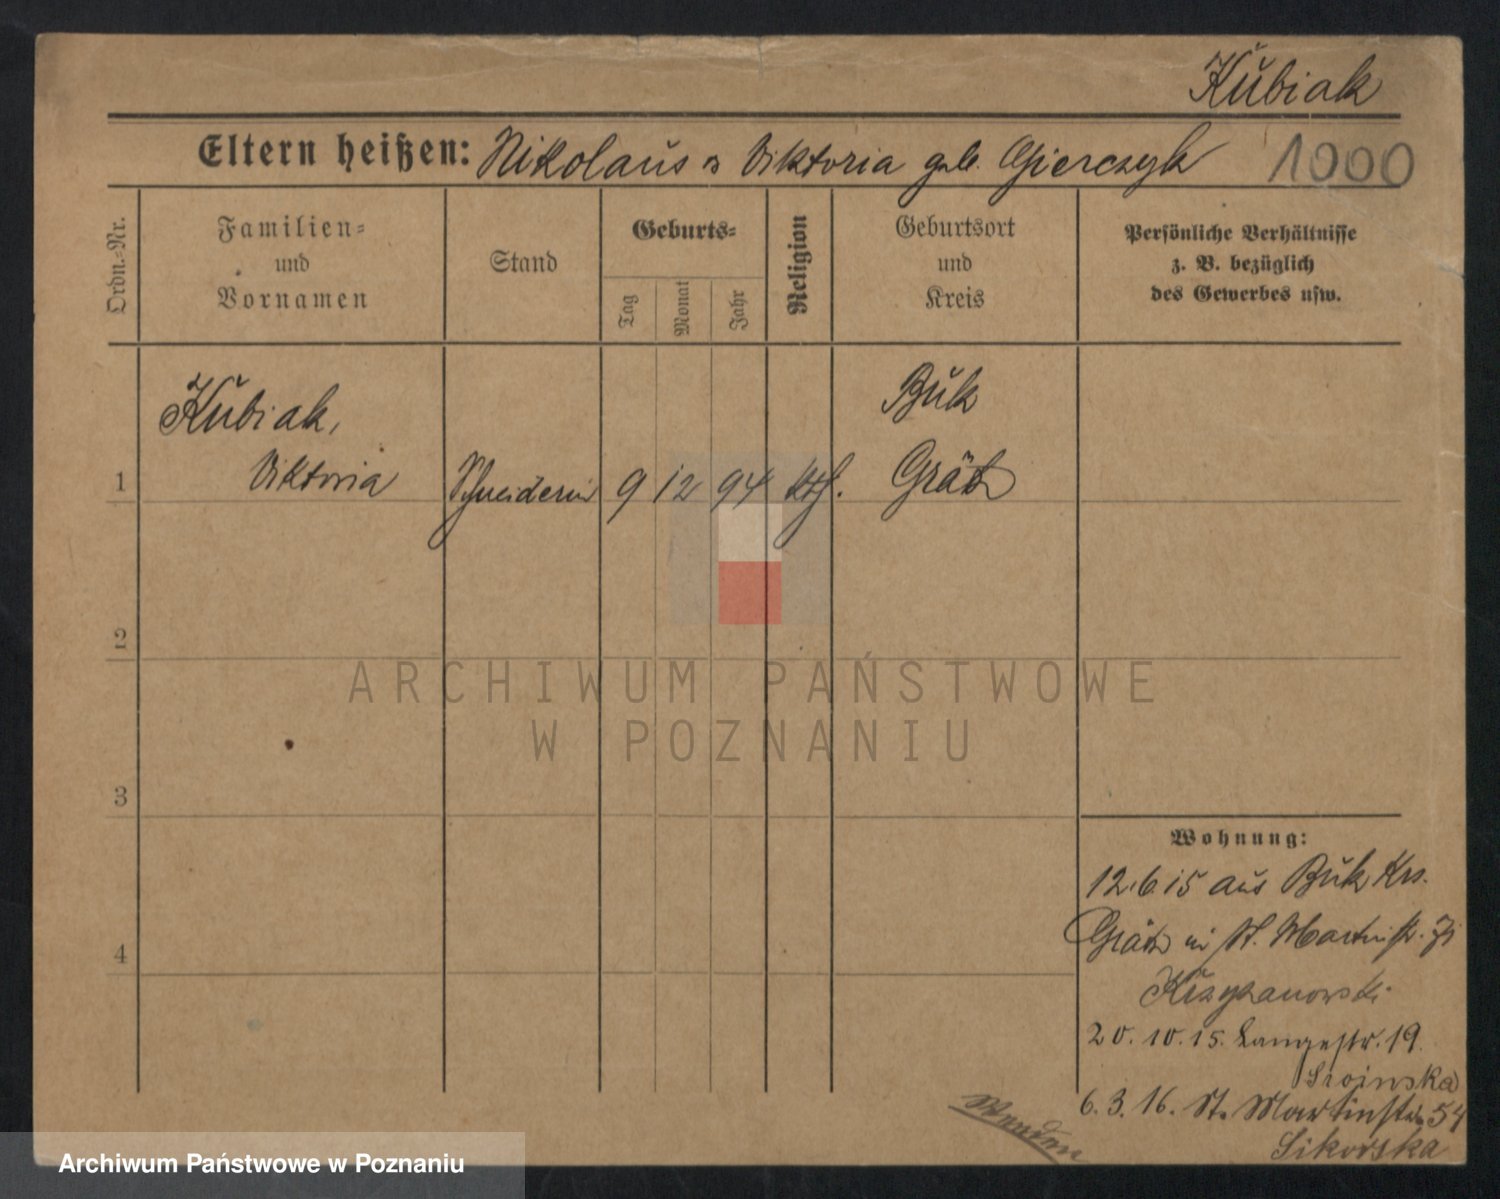 Kubiak
Eltern heißen: Nikolaus u Viktoria geb. Gierczyk 1000
Ordn.-Nr.
Familien-
und
Vornamen
Stand
Geburts-
Tag
Monat
Jahr
Religion
Geburtsort
und
Kreis
Persönliche Verhältnisse
z. B. bezüglich
des Gewerbes usw.
1
Kubiak,
Viktoria
Schneiderin
9
12
94
kth.
Buk
Grätz
2
ARCHIWUM PAŃSTWOWE
W POZNANIU
3
4
Wohnung:
12.6.15 aus Buk Krs.
Grätz in St. Martinstr.
Krzyzanowski
20.10.15. Langestr. 19.
6.3.16. St. Martinstr. 54
Sikorska
Wenden
Archiwum Państwowe w Poznaniu